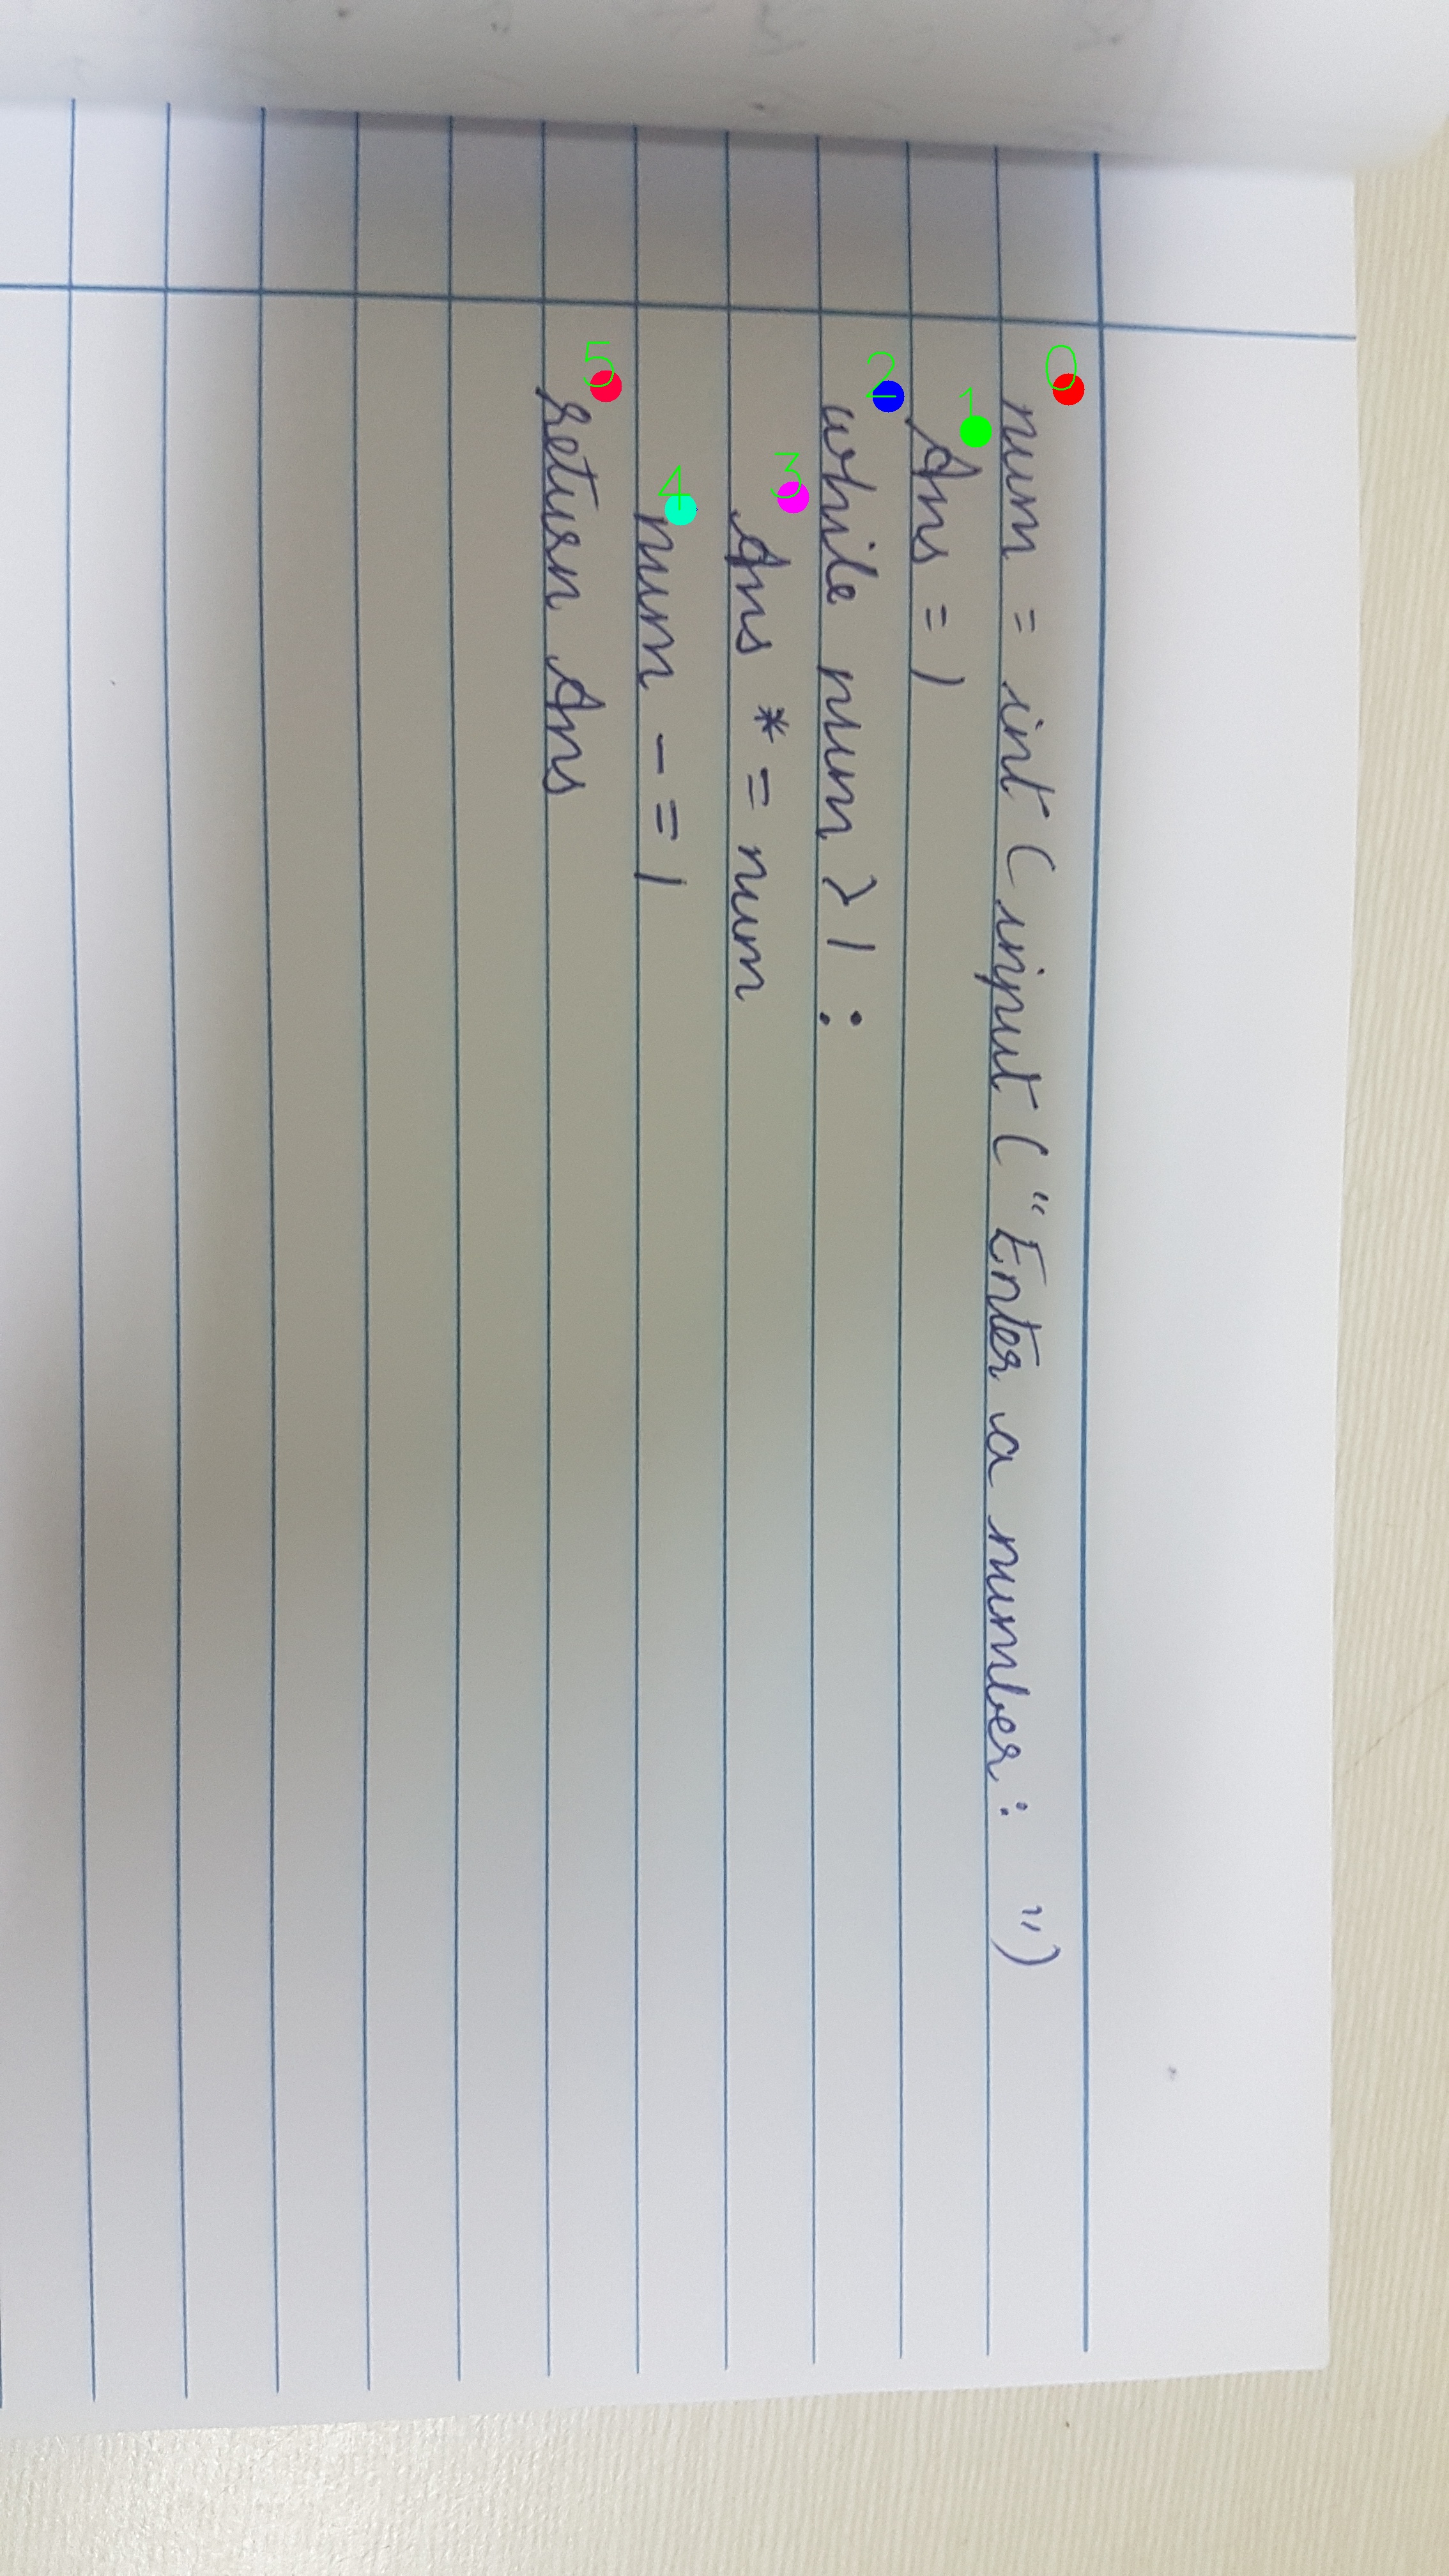 num = int ( input ( "Enter a number : ")
Ans = 1
while num > 1 :
    Ans * = num
    num - = 1
return Ans
0
1
2
3
4
5